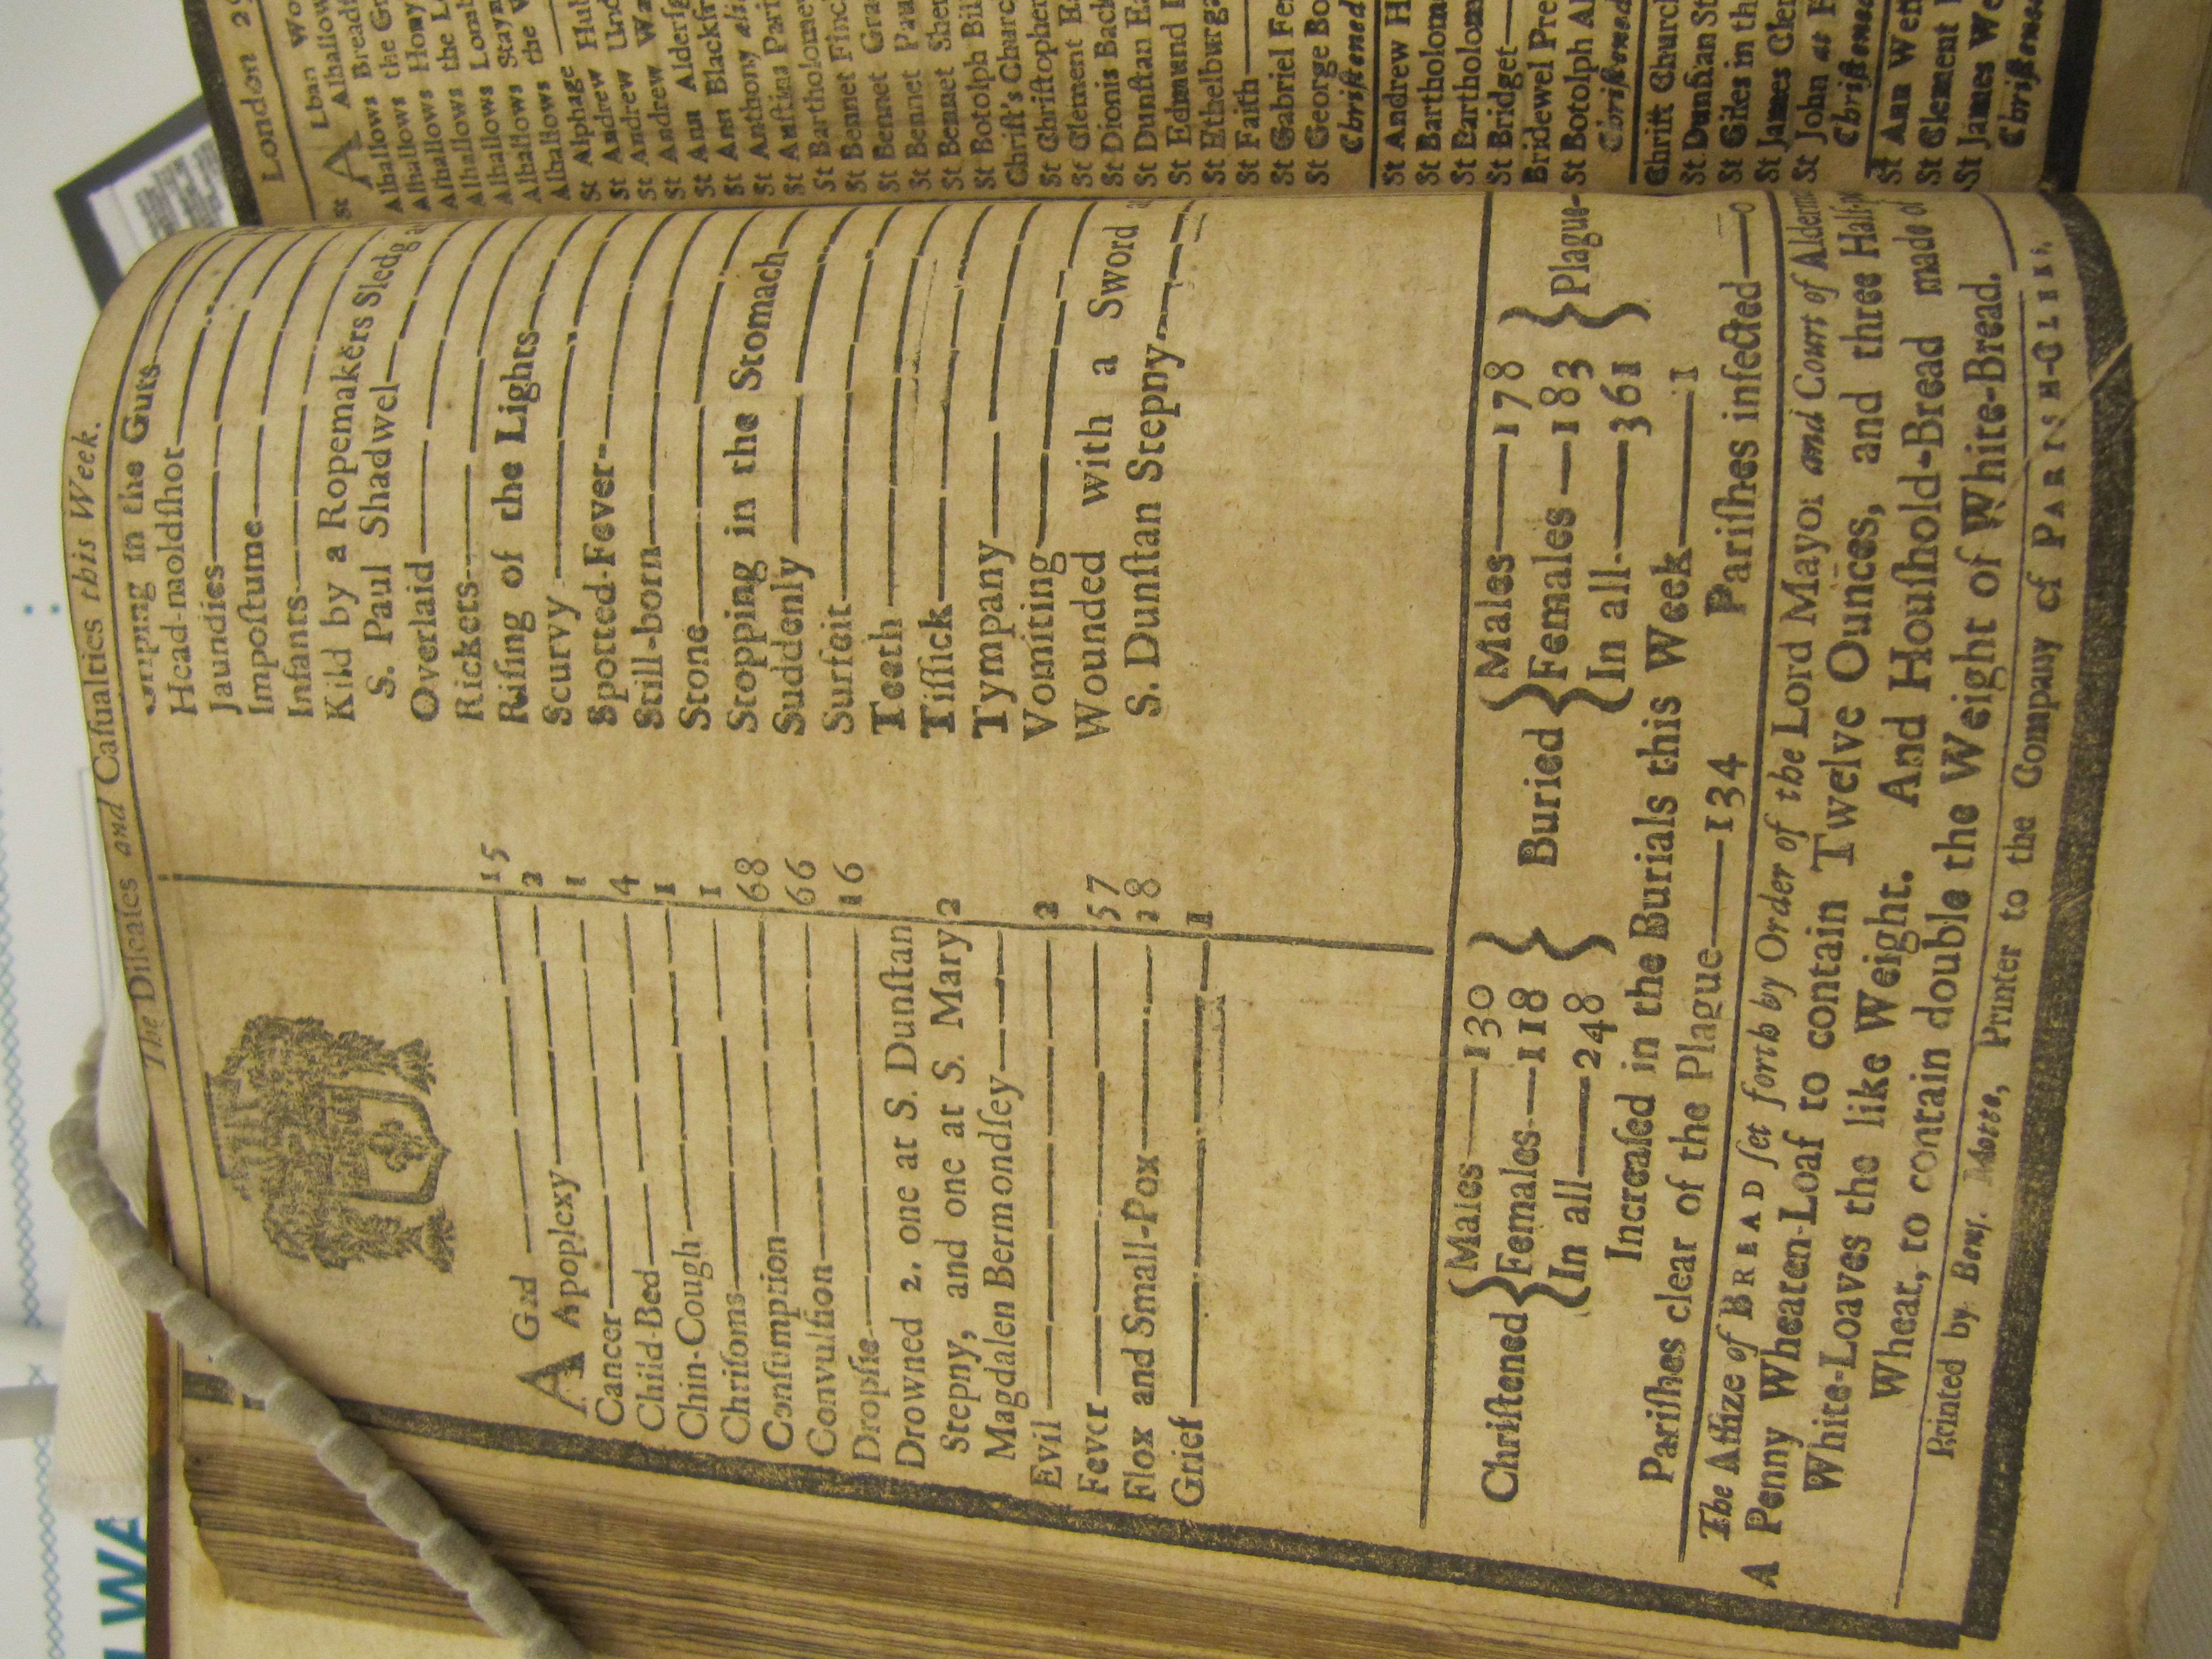 The Diſeaſes and Caſualties this Week.
AGed 15
Apoplexy 2
Cancer 1
Child-Bed 4
Chin-Cough 1
Chriſoms 1
Conſumption 68
Convulſion 66
Dropſie 16
Drowned 2. one at S. Dunſtan
Stepny, and one at S. Mary 2
Magdalen Bermondſey
Evil 2
Fever 57
Flox and Small-Pox 28
Grief 1
Griping in the Guts
Head-moldſhot
Jaundies
Impoſtume
Infants
Kild by a Ropemakers Sledg
S. Paul Shadwel
Overlaid
Rickets
Riſing of the Lights
Scurvy
Spotted-Fever
Still-born
Stone
Stopping in the Stomach
Suddenly
Surfeit
Teeth
Tiſſick
Tympany
Vomiting
Wounded with a Sword
S. Dunſtan Stepny
Chriſtened { Males 130 Females 118 In all 248 }
Buried { Males 178 Females 183 In all 361 } Plague
Increaſed in the Burials this Week 1
Pariſhes clear of the Plague 134 Pariſhes infected 0
The Aſſize of BREAD ſet forth by Order of the Lord Mayor and Court of
A Penny Wheaten-Loaf to contain Twelve Ounces, and three
White-Loaves the like Weight. And Houſhold-Bread made
Whear, to contain double the Weight of White-Bread.
Printed by Benj. Motte, Printer to the Company of PARISH-CLERKS
London
St ALban
Alhallow
Alhallows
Alhallows the
Alhallows
Alhallows the
Alhallows
Alhallows
Alhallows the
St Alphage
St Andrew
St Andrew
St Andrew
St Ann
St Ann Blackfr
St Anthony
St Auſtins
St Bartholomew
St Bennet Finch
St Bennet
St Bennet
St Bennet
St Botolph
Chriſt's Church
St Chriſtopher
St Clement
St Dionis Back
St Dunſtan
St Edmund
St Ethelburga
St Faith
St Gabriel
St George
Chriſtened
St Andrew
St Bartholom
St Bartholom
St Bridget
Bridewel
St Botolph
Chriſtened
Chriſt Church
St Dunſtan
St Giles in the
St James
St John at
Chriſtened
St Ann
St Clement
St James
Chriſtened